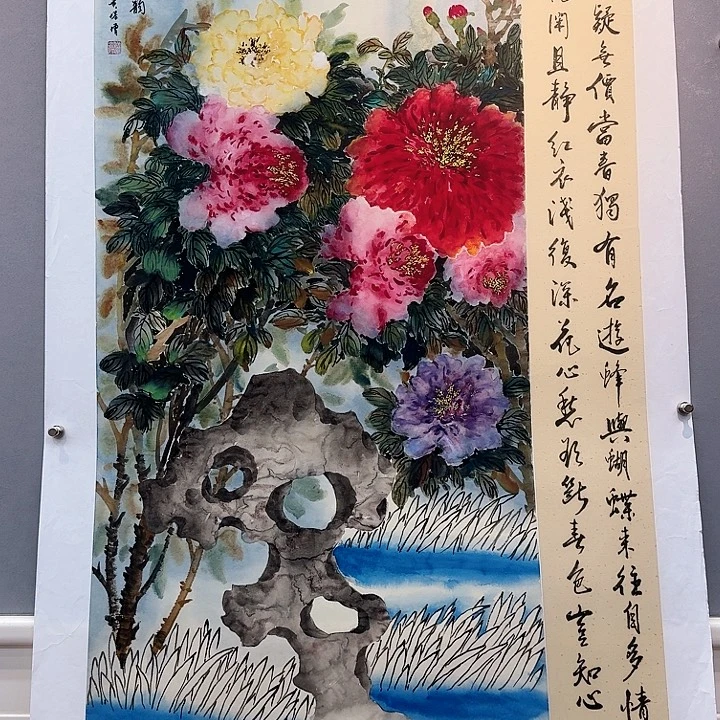 疑無價當春獨有名遊蜂與蝴蝶來往自多情
閑且靜紅衣淺復深花心愁欲斷春色豈知心
韻